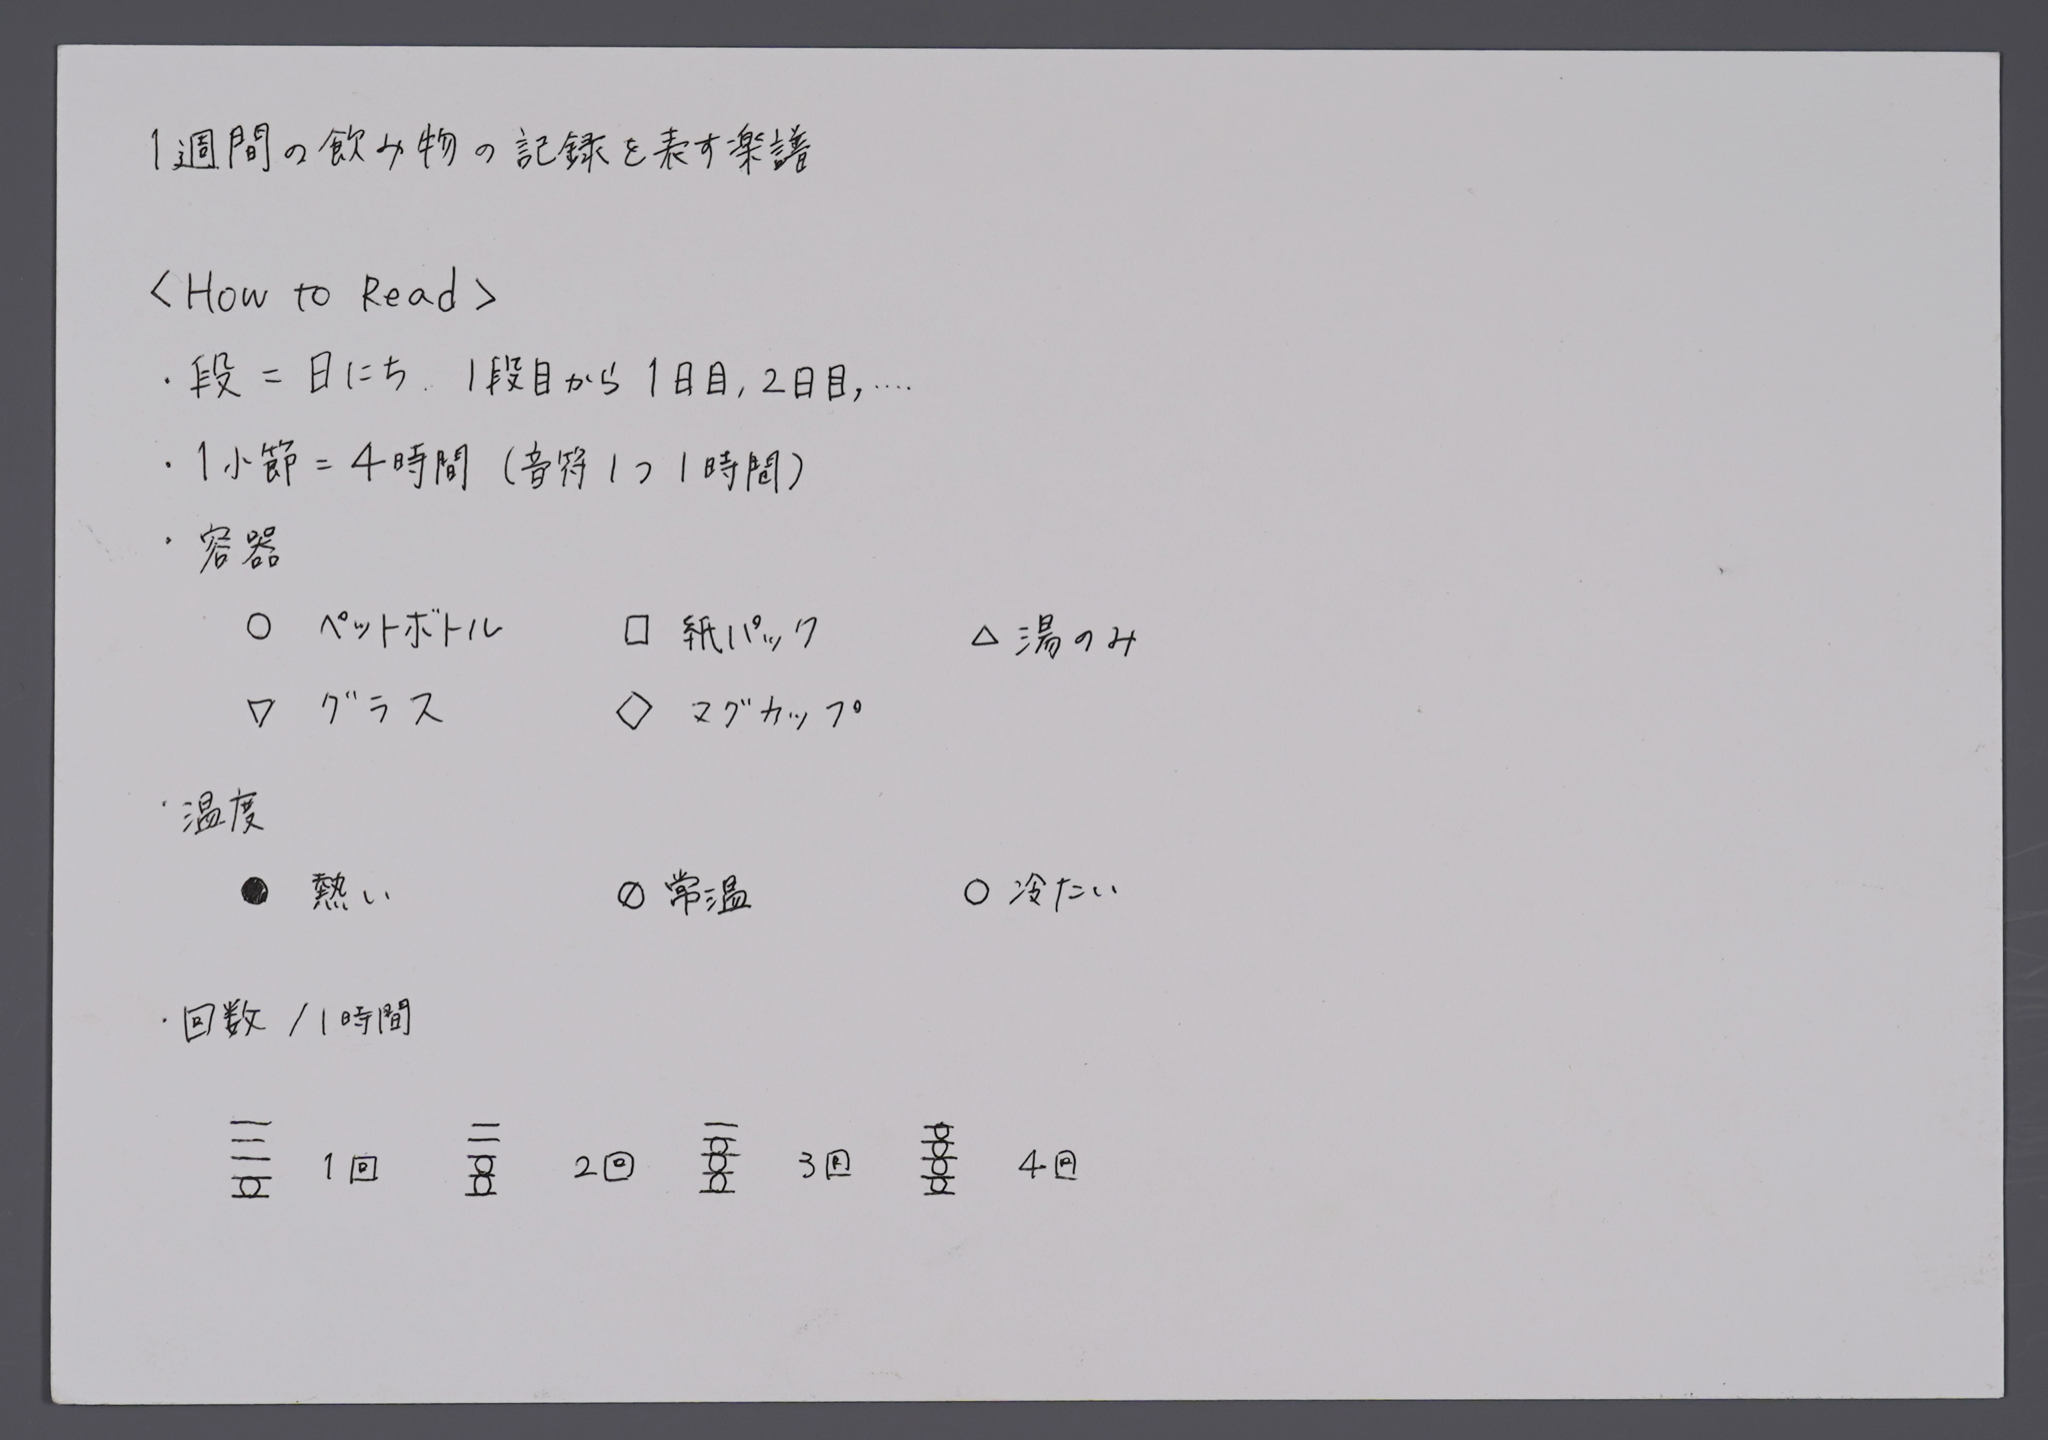 1週間の飲み物の記録を表す楽譜
<How to Read>
・段 = 日にち. 1段目から1日目, 2日目, ....
・1小節 = 4時間 (音符1つ1時間)
・容器
○ ペットボトル □ 紙パック △ 湯のみ
▽ グラス ◇ マグカップ
・温度
● 熱い ∅ 常温 ○ 冷たい
・回数 / 1時間
1回 2回 3回 4回